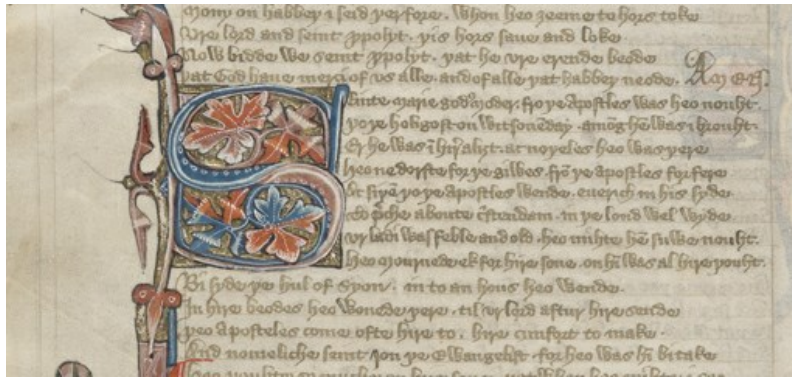 Mony on habbeþ i seid þerfore. whon heo ȝeeme to hors toke
Vre lord and seint ypolyt. þis hors saue and loke.
Now bidde we seint ypolyt. þat he vre erende beode
þat God haue merci of vs alle. and of alle þat habbeþ neode. Amen.
Seinte Marie godus moder. fro þe Apostles was heo nouht.
þo þe holigost on witsoneday. among hem was i brouht.
Er he was in him aliht. at no veles heo was þere
heo ne dorste for þe giwes. from þe apostles for fere
At siþen þo þe apostles wende. euerch in his syde
to preche aboute cristendam. in þe lond wel wyde
vr ladi was feble and old. heo mihte hem suwe nouht.
Heo mournede ek for hire sone. on him was al hire þouht.
Bi syde þe hul of syon. in to an hous heo wende.
In hire beodes heo wonede þere. til vr lord aftur hire sende
þeo Aposteles come ofte hire to. hire cumfort to make.
And nomeliche seint Jon þe Ewangelist. for heo was him bitake